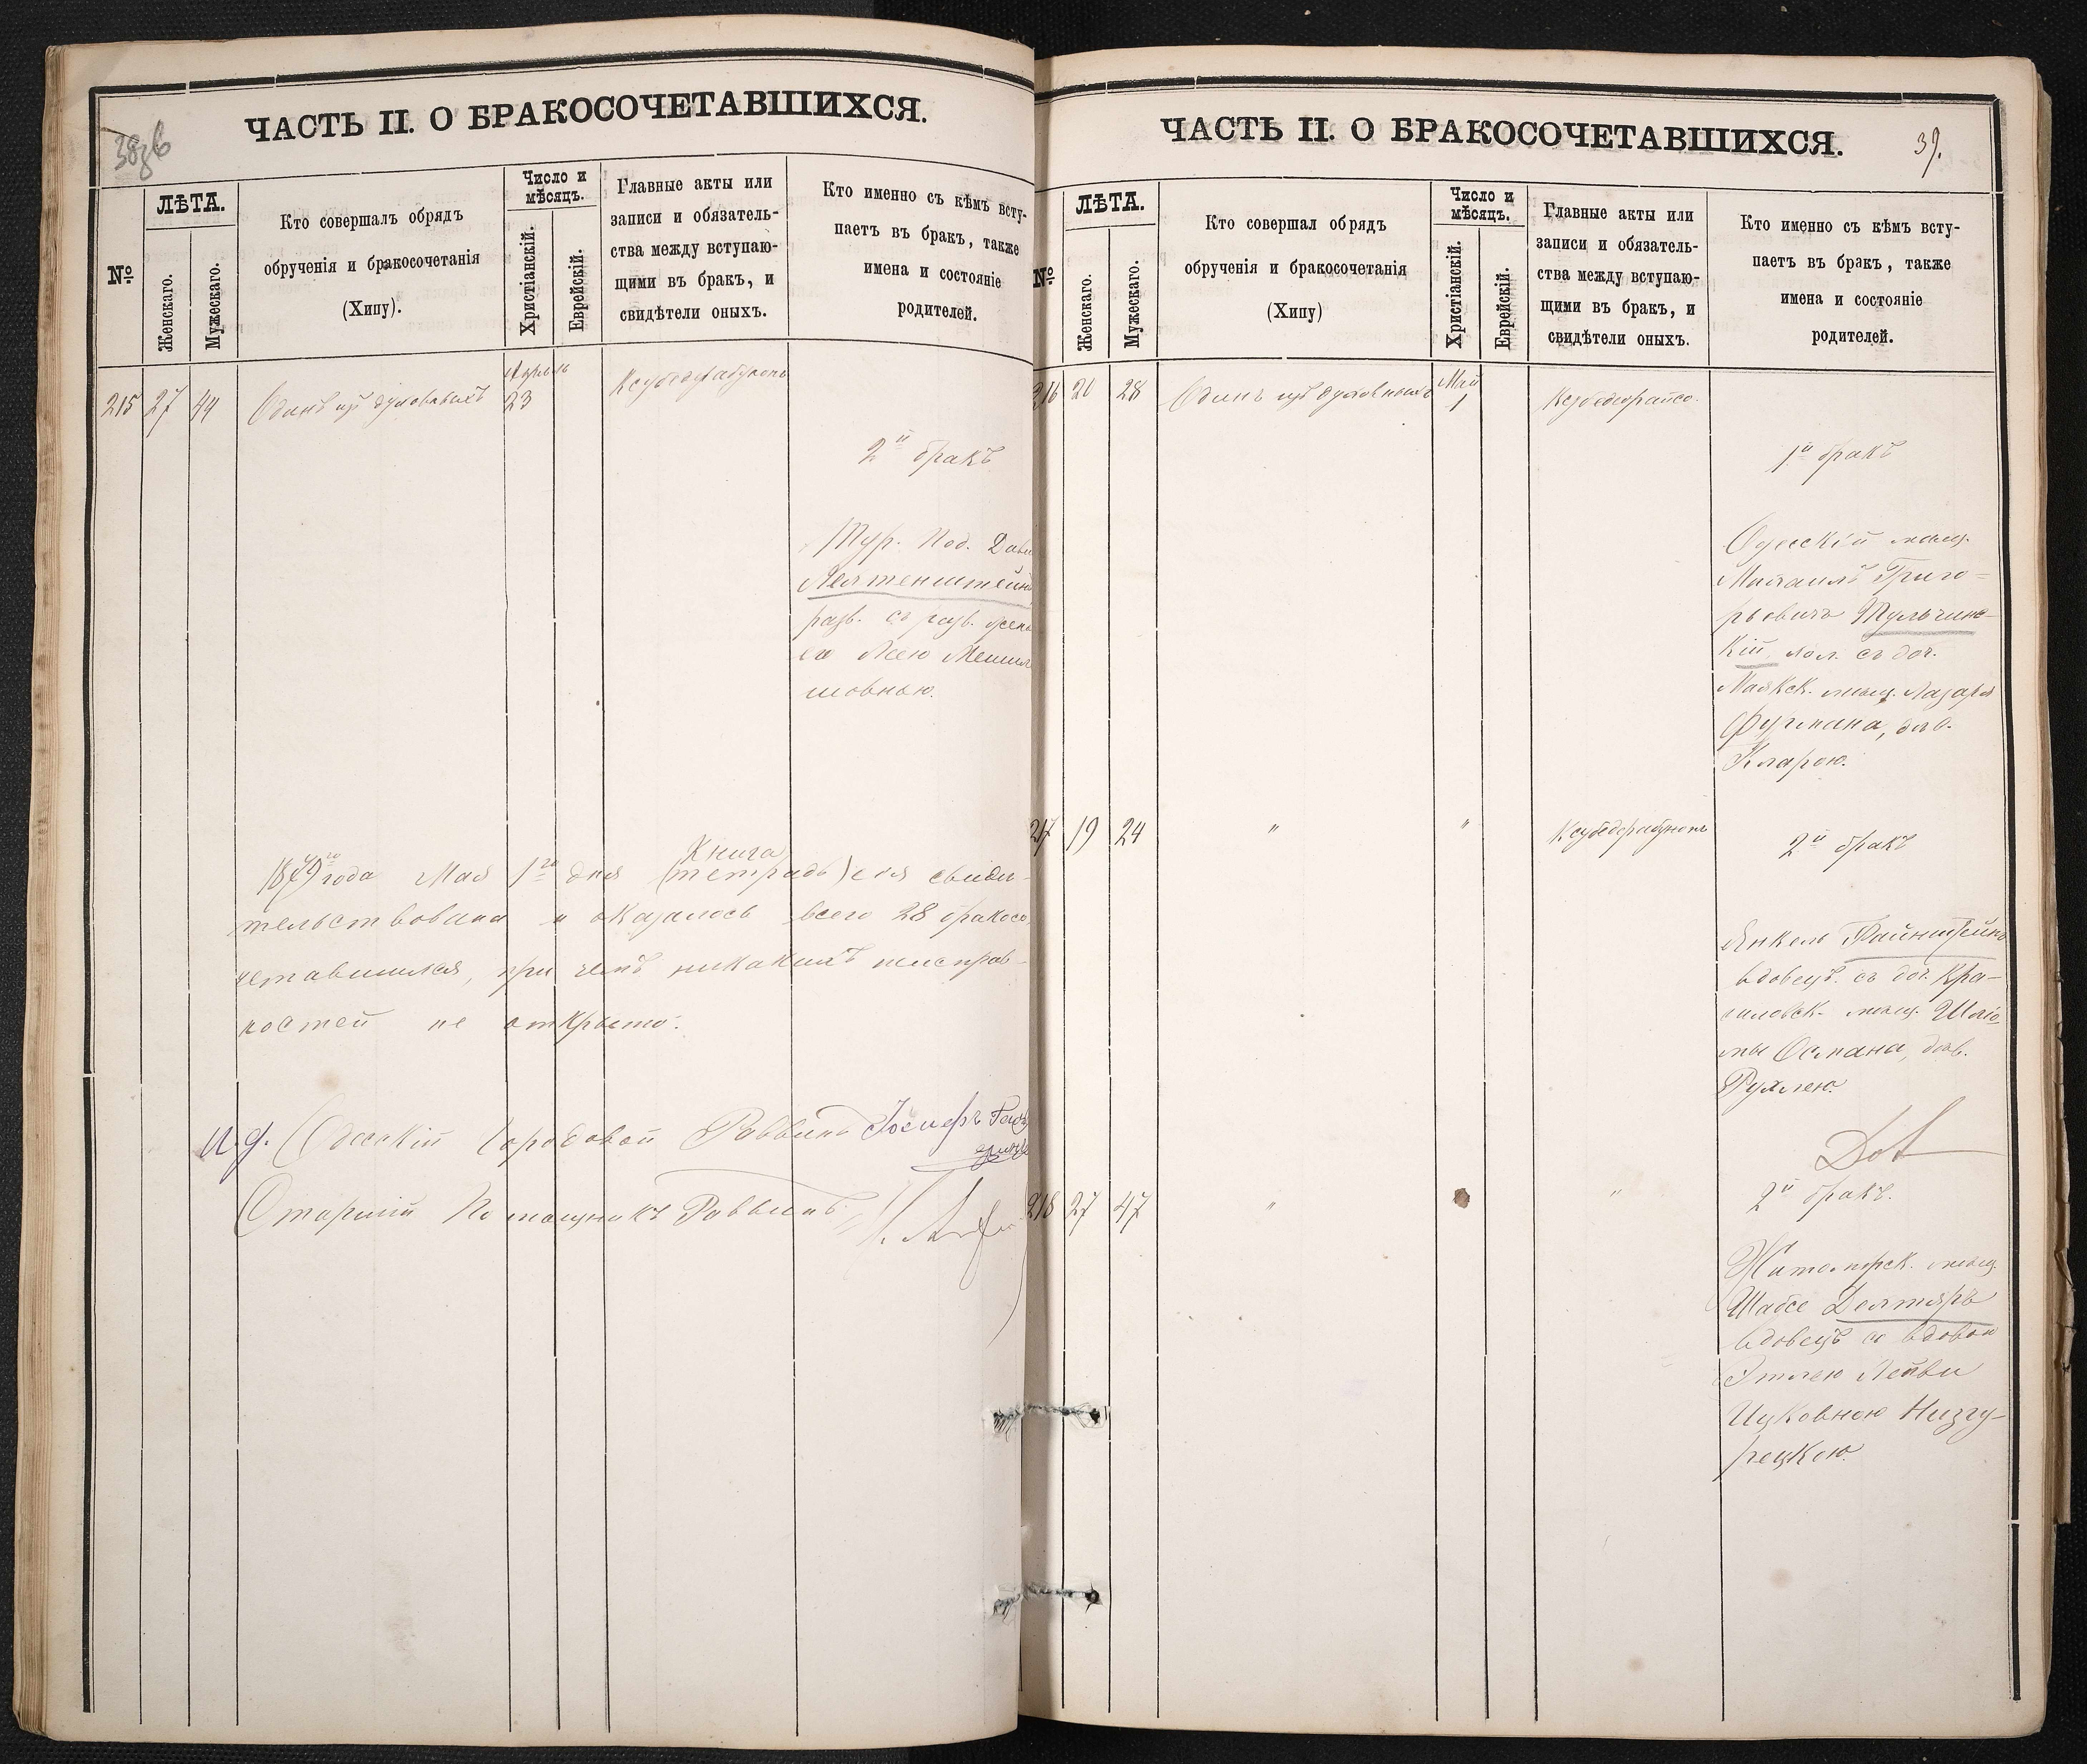 ЧАСТЬ II. О БРАКОСОЧЕТАВШИХСЯ.
№
ЛѢТА.
Женскаго.
Мужескаго.
Кто совершалъ обрядъ
обрученія и бракосочетанія
(Хипу).
Число и
мѣсяцъ.
Христіанскій.
Еврейскій.
Главные акты или
записи и обязатель-
ства между вступаю-
щими въ бракъ, и
свидѣтели оныхъ.
Кто именно съ кѣмъ всту-
паетъ въ бракъ, также
имена и состояніе
родителей.
215 27 44 Одинъ изъ духовныхъ
Апрель
23
2й бракъ
Тур. Под.
разв. съ разв.
шовною.
Книга
1879го года Мая 1го дня (тетрадь) сія свиди-
тельствована и оказалось всего 28 бракосо
четавшихся, при чемъ никакихъ неисправ-
ностей не открыто.
И.д. Одесскій Городовой Раввинъ Іосифъ
Старшій Помощникъ Раввина
ЧАСТЬ II. О БРАКОСОЧЕТАВШИХСЯ.
39.
№
ЛѢТА.
Женскаго.
Мужескаго.
Кто совершал обрядъ
обрученія и бракосочетанія
(Хипу)
Число и
мѣсяцъ.
Христіанскій.
Еврейскій.
Главные акты или
записи и обязатель-
ства между вступаю-
щими въ бракъ, и
свидѣтели оныхъ.
Кто именно съ кѣмъ всту-
паетъ въ бракъ, также
имена и состояніе
родителей.
216 20 28 Одинъ изъ духовныхъ
Май
1
1й бракъ
Одесскій мѣщ.
Михаилъ Григо-
рьевичъ Тульчинс-
кій, хол. съ доч.
Маякск. мѣщ. Лазаря
Фурмана, дѣв.
Кларою.
217 19 24 " "
2й бракъ
Янкель Файнштейнъ
вдовецъ. съ доч. Кра-
силовск. мѣщ. Шлё-
мы Османа, дѣв.
Рухлею.
218 27 47 " "
2й бракъ.
Житомирск. мѣщ.
Шабсе Дехтяръ
вдовецъ со вдовою
Этлею Лейви
Ицковною Низгу-
рецкою.